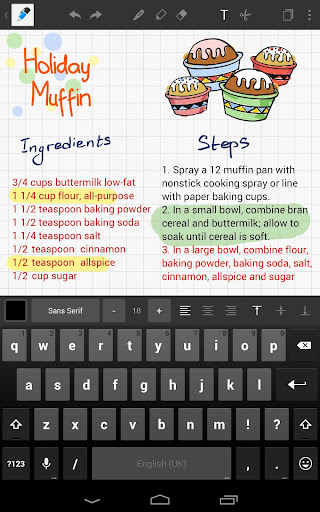 T
Holiday
Muffin
Ingredients
3/4 cups buttermilk low-fat
1 1/4 cup flour, all-purpose
1 1/2 teaspoon baking powder
1 1/2 teaspoon baking soda
1 1/4 teaspoon salt
1/2 teaspoon cinnamon
1/2 teaspoon allspice
1/2 cup sugar
Steps
1. Spray a 12 muffin pan with
nonstick cooking spray or line
with paper baking cups.
2. In a small bowl, combine bran
cereal and buttermilk; allow to
soak until cereal is soft.
3. In a large bowl, combine flour,
baking powder, baking soda, salt,
cinnamon, allspice and sugar
Sans Serif - 18 + T
q w e r t y u i o p
a s d f g h j k l
z x c v b n m ! ?
?123 / English (UK) , .